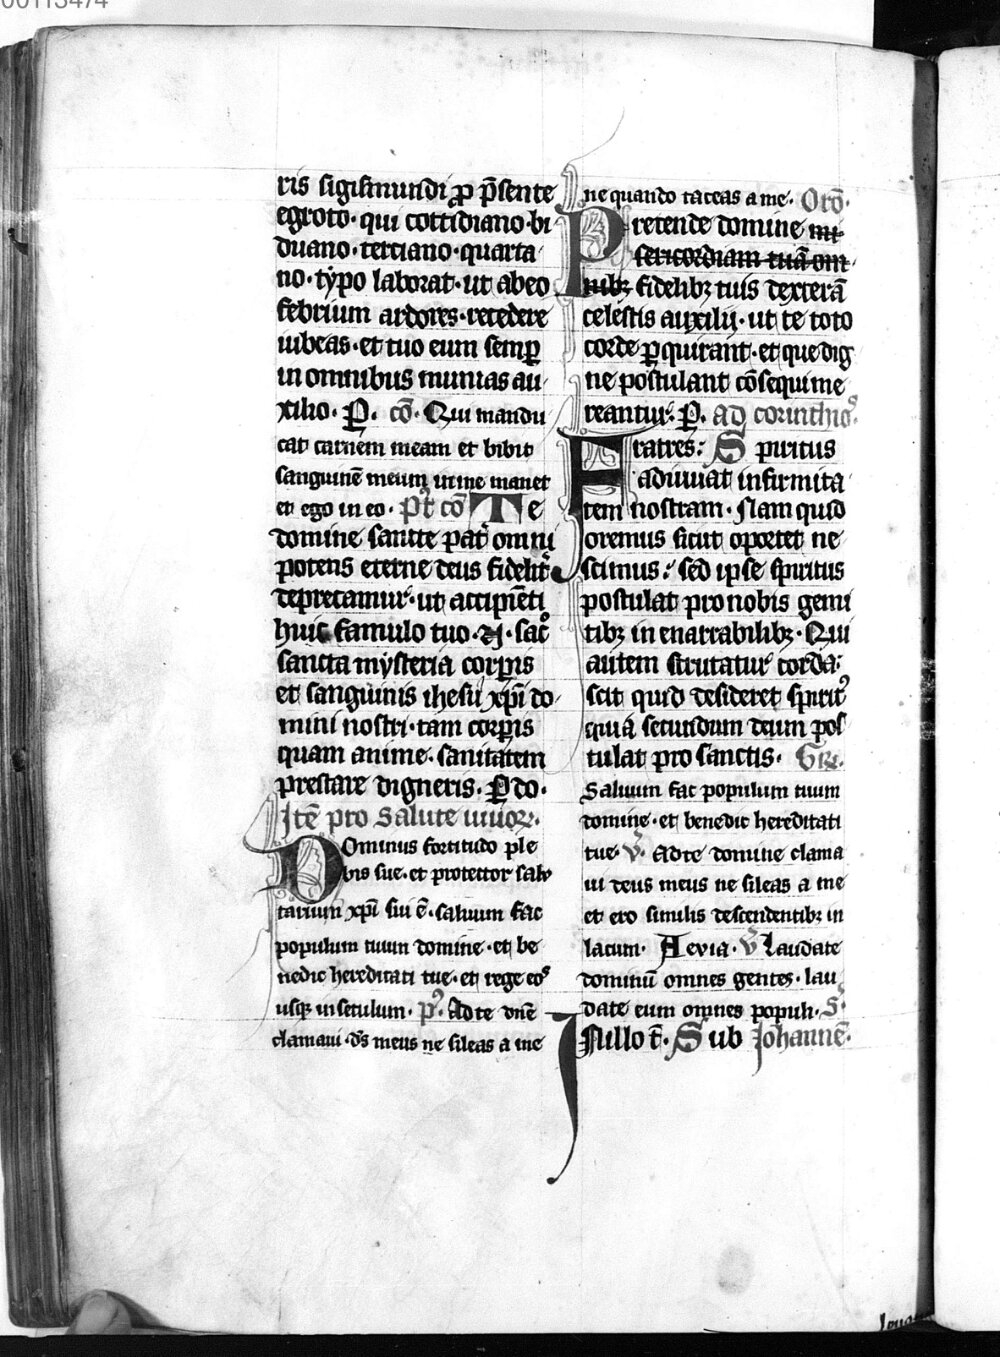 00113474
ris sigismundi ꝓ p̄sente
egroto · qui cottidiano · bi
duano · terciano · quarta
no · typo laborat · ut ab eo
febrium ardores · recedere
iubeas · et tuo eum semꝑ
in omnibus munias au
xilio · P. cō · Qui mandu
cat carnem meam et bibit
sanguinē meum in me manet
et ego in eo · Pꝰt cō Te
domine sancte pať omni
potens eterne deus fidelit̄
deprecamur · ut accipiēti
huic famulo tuo · N · sac̊
sancta mysteria corꝑis
et sanguinis ihesu xp̄i do
mini nostri · tam corꝑis
quam anime · sanitatem
prestare digneris · P do ·
Jtē pro salute uiuoꝝ ·
Dominus fortitudo ple
bis sue · et protector salu
tarium xp̄i sui ē · saluum fac
populum tuum domine · et be
nedic hereditati tue · et rege eoˢ
usqꝫ in seculum · pˢ · Ad te dn̄e
clamaui · ds̄ meus ne sileas a me
ne quando taceas a me · Orō ·
Pretende domine mi
sericordiam tuā om
nibꝫ fidelibꝫ tuis dexterā
celestis auxilij · ut te toto
corde ꝑquirant · et que dig
ne postulant cōsequi me
reantur · P. ad corinthioˢ ·
Fratres : Spiritus
adiuuat infirmita
tem nostram · Nam quid
oremus sicut oportet ne
scimus : sed ipse spiritus
postulat pro nobis gemi
tibꝫ in enarrabilibꝫ · Qui
autem scrutatur corda :
scit quid desideret spiritꝰ
quia secundum deum pos
tulat pro sanctis · Gr̄.
Saluum fac populum tuum
domine · et benedic hereditati
tue · V̄ · Ad te domine clama
ui deus meus ne sileas a me
et ero similis descendentibꝫ in
lacum · Aeuia · V̄ Laudate
dominū omnes gentes · lau
date eum omnes populi · S ·
Jn illo t̄ · Sub Johannē ·